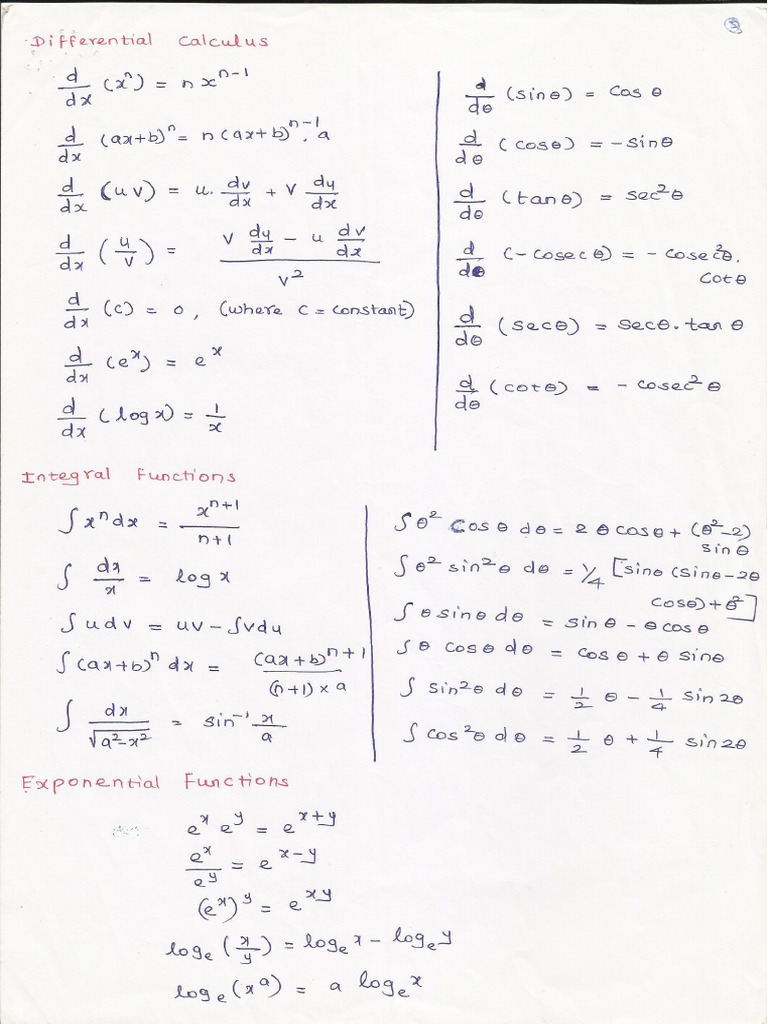 ③
Differential Calculus
d/dx (xⁿ) = n xⁿ⁻¹
d/dx (ax+b)ⁿ = n(ax+b)ⁿ⁻¹. a
d/dx (uv) = u. dv/dx + v du/dx
d/dx (u/v) = (v du/dx − u dv/dx)/v²
d/dx (c) = 0, (where c = constant)
d/dx (eˣ) = eˣ
d/dx (log x) = 1/x
d/dθ (sinθ) = cos θ
d/dθ (cosθ) = −sinθ
d/dθ (tanθ) = sec²θ
d/dθ (−cosecθ) = −cosec²θ.
cotθ
d/dθ (secθ) = secθ.tanθ
d/dθ (cotθ) = −cosec²θ
Integral Functions
∫xⁿdx = xⁿ⁺¹/n+1
∫ dx/x = log x
∫u dv = uv − ∫vdu
∫(ax+b)ⁿ dx = (ax+b)ⁿ⁺¹/(n+1)×a
∫ dx/√(a²−x²) = sin⁻¹ x/a
∫θ² cosθ dθ = 2θcosθ + (θ²−2)
sinθ
∫θ² sin²θ dθ = 1/4 [sinθ(sinθ−2θ
cosθ)+θ²]
∫θsinθdθ = sinθ − θcosθ
∫θ cosθ dθ = cosθ + θ sinθ
∫ sin²θ dθ = 1/2 θ − 1/4 sin2θ
∫cos²θ dθ = 1/2 θ + 1/4 sin2θ
Exponential Functions
eˣ eʸ = eˣ⁺ʸ
eˣ/eʸ = eˣ⁻ʸ
(eˣ)ʸ = eˣʸ
logₑ (x/y) = logₑx − logₑy
logₑ(xᵃ) = a logₑx